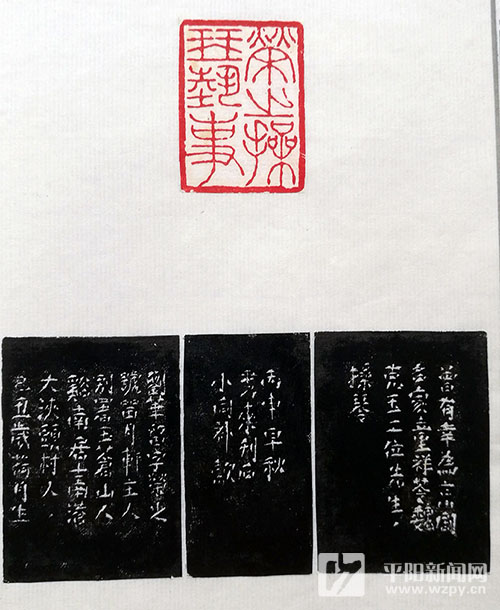 榮之操
琴藝事
曾有幸為京劇
家童祥苓魏
二位先生，
操琴
丙申早秋
來刊
小雨補款
劉華字榮之
號月軒主人
別署玉蒼山人
谿南居士南港
大頭村人，
丑歲荷月生
平阳新闻网
www.wzpy.cn